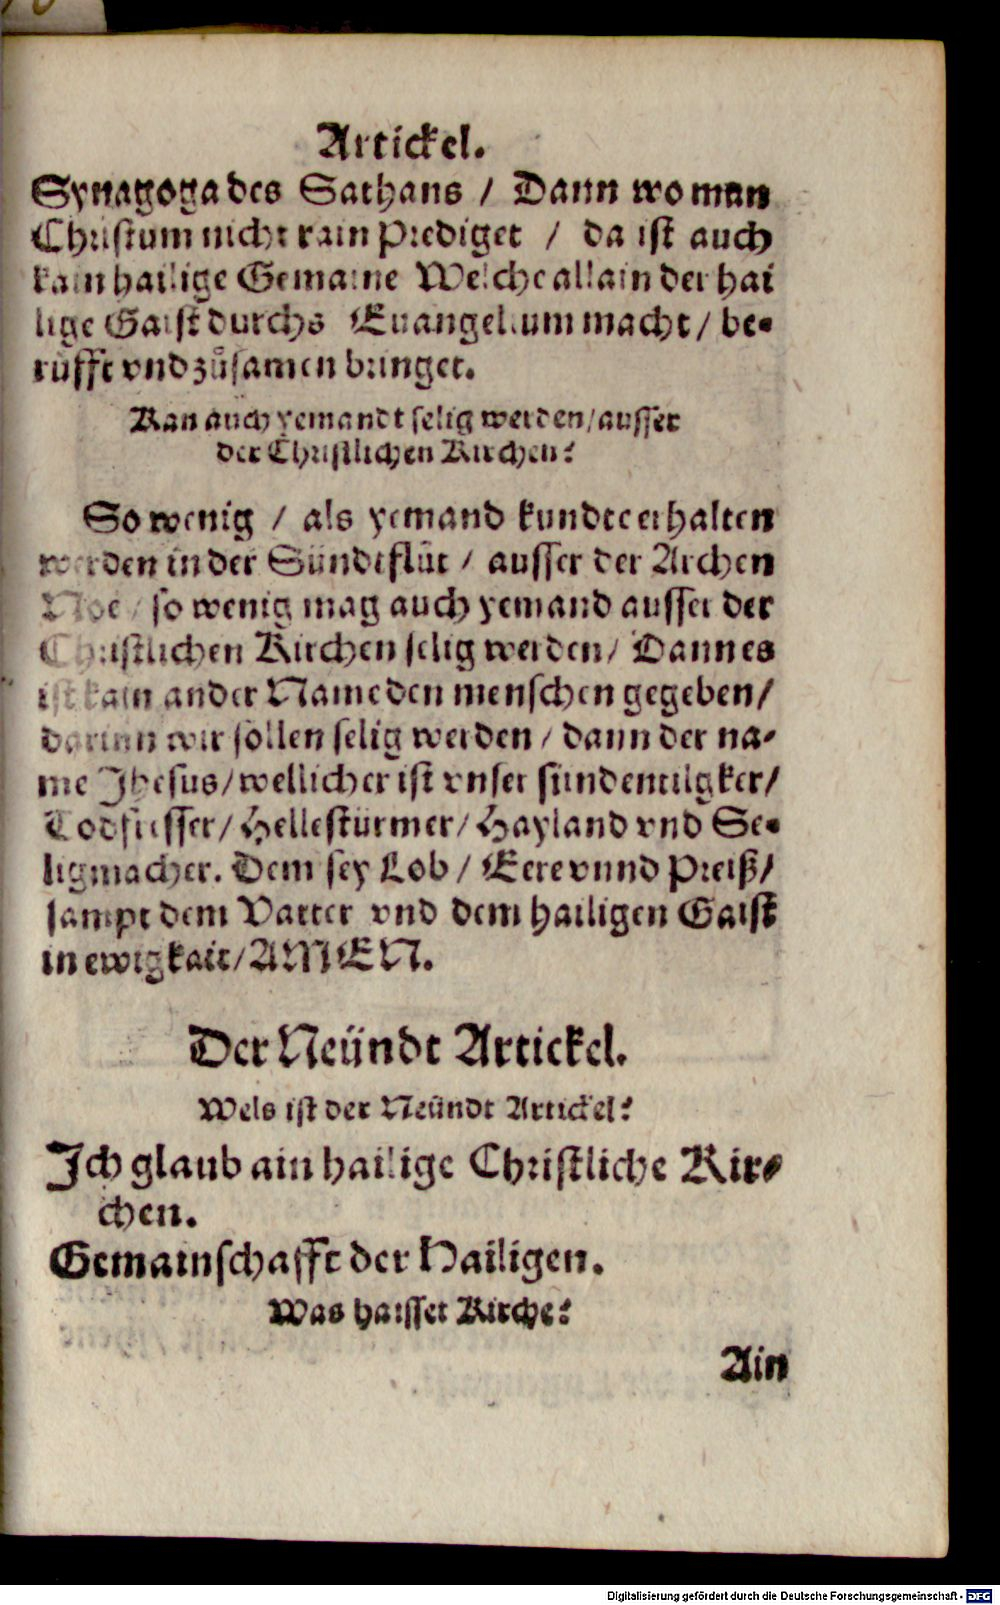 Artickel.
Synagoga des Sathans / Dann wo man
Christum nicht rain Prediget / da ist auch
kain hailige Gemaine Welche allain der hai
lige Gaist durchs Euangelium macht / be-
rüfft vnd zůsamen bringet.
Kan auch yemandt selig werden / ausser
der Christlichen Kirchen?
So wenig / als yemand kundte erhalten
werden in der Sündtflůt / ausser der Archen
Noe / so wenig mag auch yemand ausser der
Christlichen Kirchen selig werden / Dann es
ist kain ander Name den menschen gegeben /
darinn wir sollen selig werden / dann der na-
me Jhesus / wellicher ist vnser sündentilgker /
Todfresser / Hellestürmer / Hayland vnd Se-
ligmacher. Dem sey Lob / Eere vnnd Preiß /
sampt dem Vatter vnd dem hailigen Gaist
in ewigkait / AMEN.
Der Neündt Artickel.
Wels ist der Neündt Artickel?
Ich glaub ain hailige Christliche Kir-
chen.
Gemainschafft der Hailigen.
Was haisset Kirche?
Ain
Digitalisierung gefördert durch die Deutsche Forschungsgemeinschaft - DFG